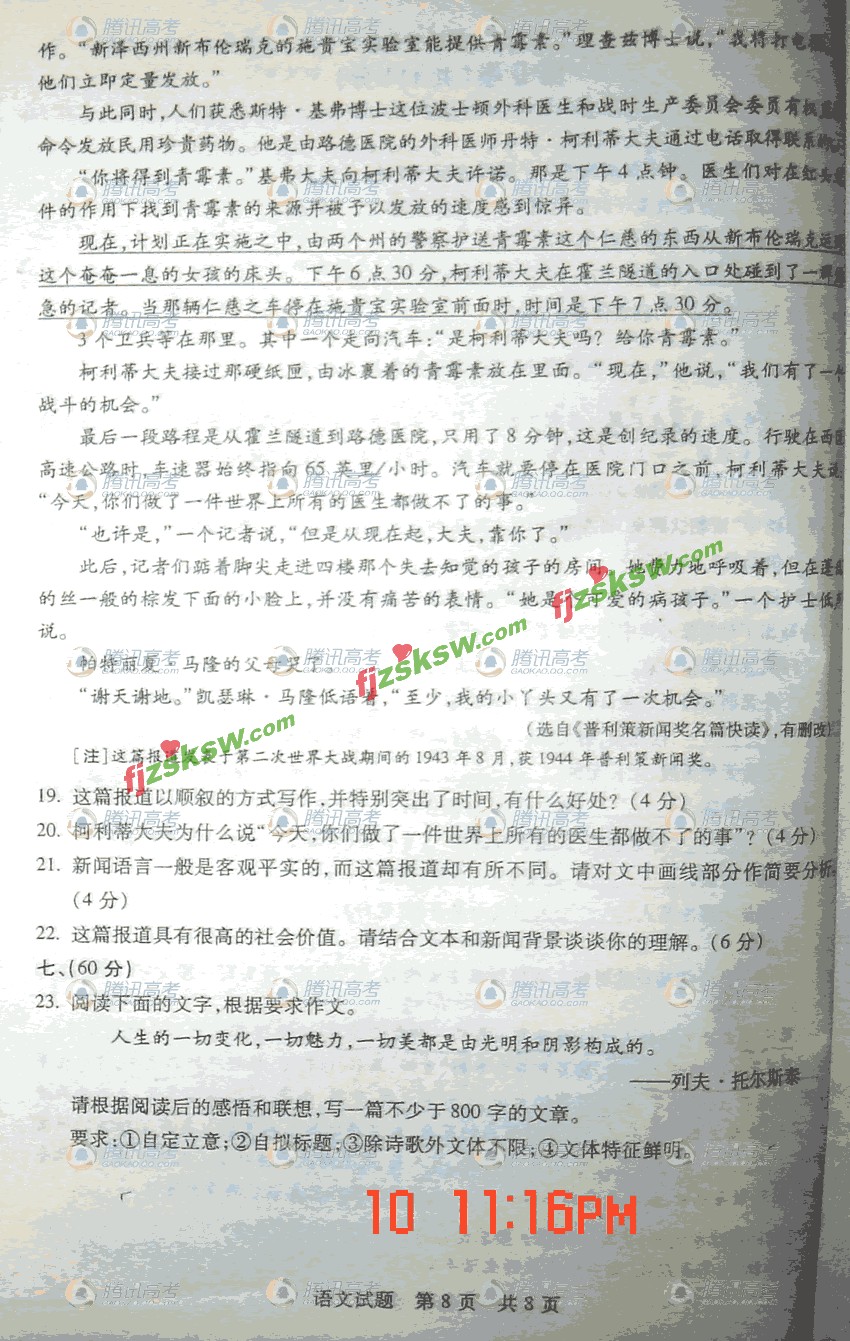 作。“新泽西州新布伦瑞克的施贵宝实验室能提供青霉素。”理查兹博士说，“我将打电
他们立即定量发放。”
与此同时，人们获悉斯特·基弗博士这位波士顿外科医生和战时生产委员会委员有权
命令发放民用珍贵药物。他是由路德医院的外科医师丹特·柯利蒂大夫通过电话取得联系
“你将得到青霉素。”基弗大夫向柯利蒂大夫许诺。那是下午4点钟。医生们对在红头
件的作用下找到青霉素的来源并被予以发放的速度感到惊异。
现在，计划正在实施之中，由两个州的警察护送青霉素这个仁慈的东西从新布伦瑞克
这个奄奄一息的女孩的床头。下午6点30分，柯利蒂大夫在霍兰隧道的入口处碰到了一
急的记者。当那辆仁慈之车停在施贵宝实验室前面时，时间是下午7点30分。
3个卫兵等在那里。其中一个走向汽车：“是柯利蒂大夫吗？给你青霉素。”
柯利蒂大夫接过那硬纸匣，由冰裹着的青霉素放在里面。“现在，”他说，“我们有了一
战斗的机会。”
最后一段路程是从霍兰隧道到路德医院，只用了8分钟，这是创纪录的速度。行驶在西
高速公路时，车速器始终指向65英里/小时。汽车就要停在医院门口之前，柯利蒂大夫说
“今天，你们做了一件世界上所有的医生都做不了的事。”
“也许是，”一个记者说，“但是从现在起，大夫，靠你了。”
此后，记者们踮着脚尖走进四楼那个失去知觉的孩子的房间。她费力地呼吸着，但在蓬
的丝一般的棕发下面的小脸上，并没有痛苦的表情。“她是个可爱的病孩子。”一个护士低
说。
帕特丽夏·马隆的父母哭了。
“谢天谢地。”凯瑟琳·马隆低语着，“至少，我的小丫头又有了一次机会。”
（选自《普利策新闻奖名篇快读》，有删改）
［注］这篇报道发表于第二次世界大战期间的1943年8月，获1944年普利策新闻奖。
19. 这篇报道以顺叙的方式写作，并特别突出了时间，有什么好处？（4分）
20. 柯利蒂大夫为什么说“今天，你们做了一件世界上所有的医生都做不了的事”？（4分）
21. 新闻语言一般是客观平实的，而这篇报道却有所不同。请对文中画线部分作简要分析。
（4分）
22. 这篇报道具有很高的社会价值。请结合文本和新闻背景谈谈你的理解。（6分）
七、（60分）
23. 阅读下面的文字，根据要求作文。
人生的一切变化，一切魅力，一切美都是由光明和阴影构成的。
——列夫·托尔斯泰
请根据阅读后的感悟和联想，写一篇不少于800字的文章。
要求：①自定立意；②自拟标题；③除诗歌外文体不限；④文体特征鲜明。
10 11:16PM
语文试题 第8页 共8页
腾讯高考
GAOKAO.QQ.COM
fjzsksw.com
fjzsksw.com
fjzsksw.com